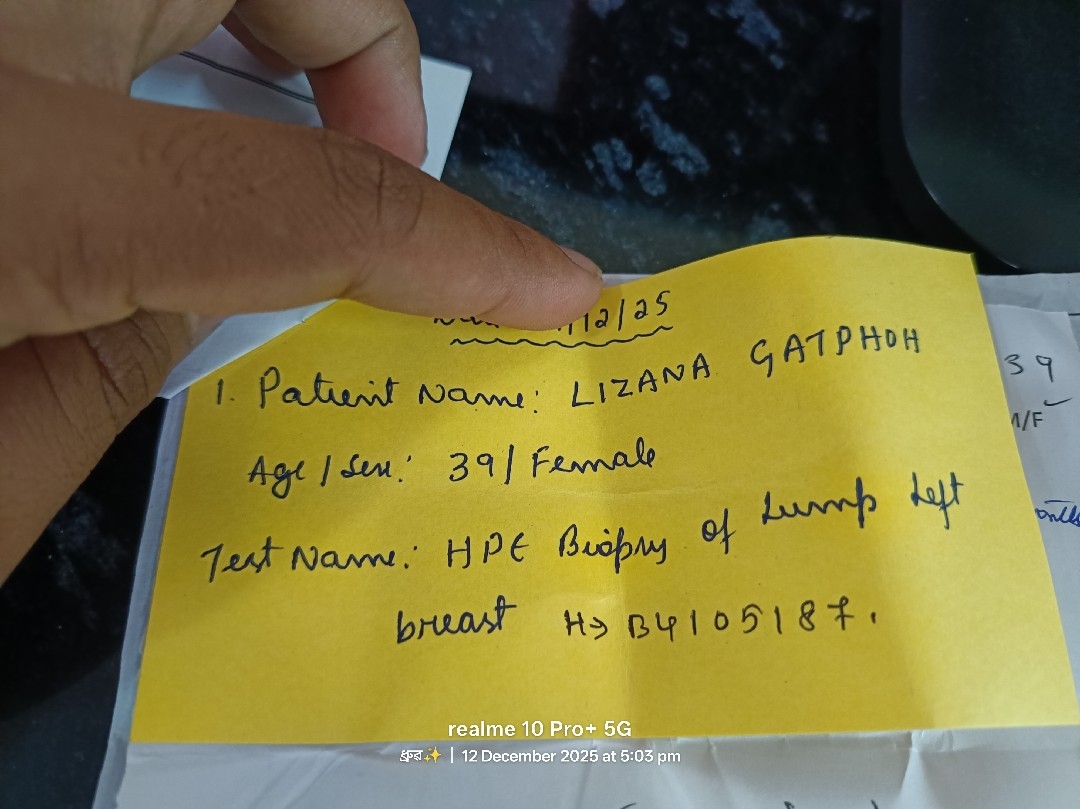 /12/25
1. Patient Name: LIZANA GATPHOH
39
M/F
Age / Sex: 39/ Female
Test Name: HPE Biopsy of Lump left
breast H→ B4105187.
realme 10 Pro+ 5G
ধ্রুব✨ | 12 December 2025 at 5:03 pm